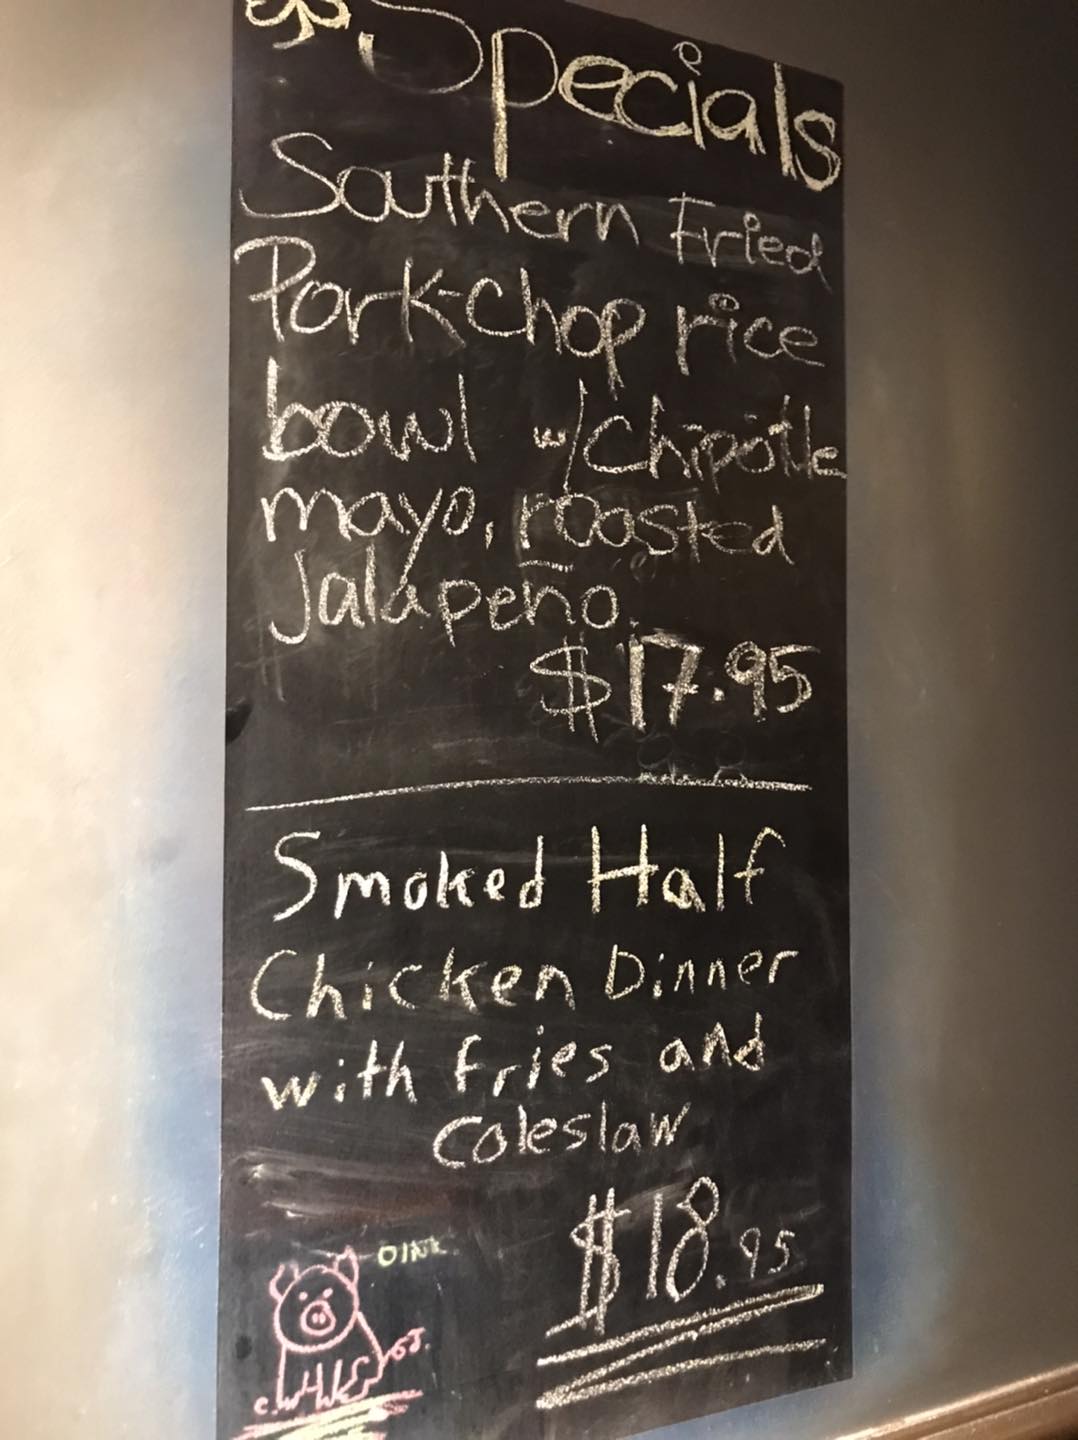 Specials
Southern Fried
Pork-Chop rice
bowl w/ Chipotle
mayo, roasted
Jalapeño.
$17.95
Smoked Half
Chicken Dinner
with fries and
Coleslaw
$18.95
OINK